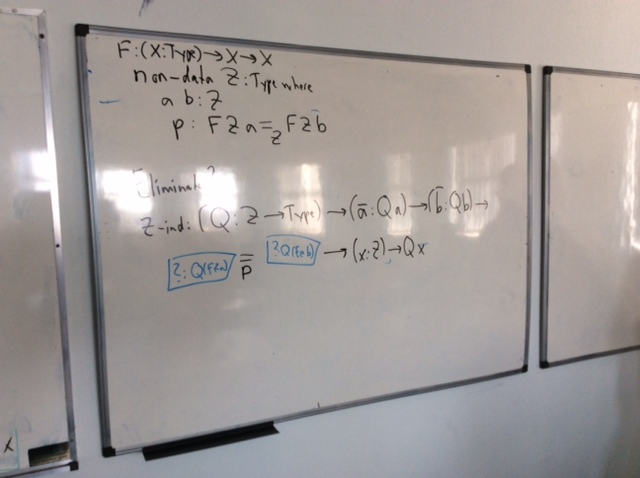 F:(X:Type)→X→X
non-data Z:Type where
a b:Z
p: F Z a =_Z F Z b
Eliminate?
Z-ind: (Q:Z→Type)→(ā:Qa)→(b̄:Qb)→
?:Q(FZa) =_p ?:Q(FZb) →(x:Z)→Qx
X